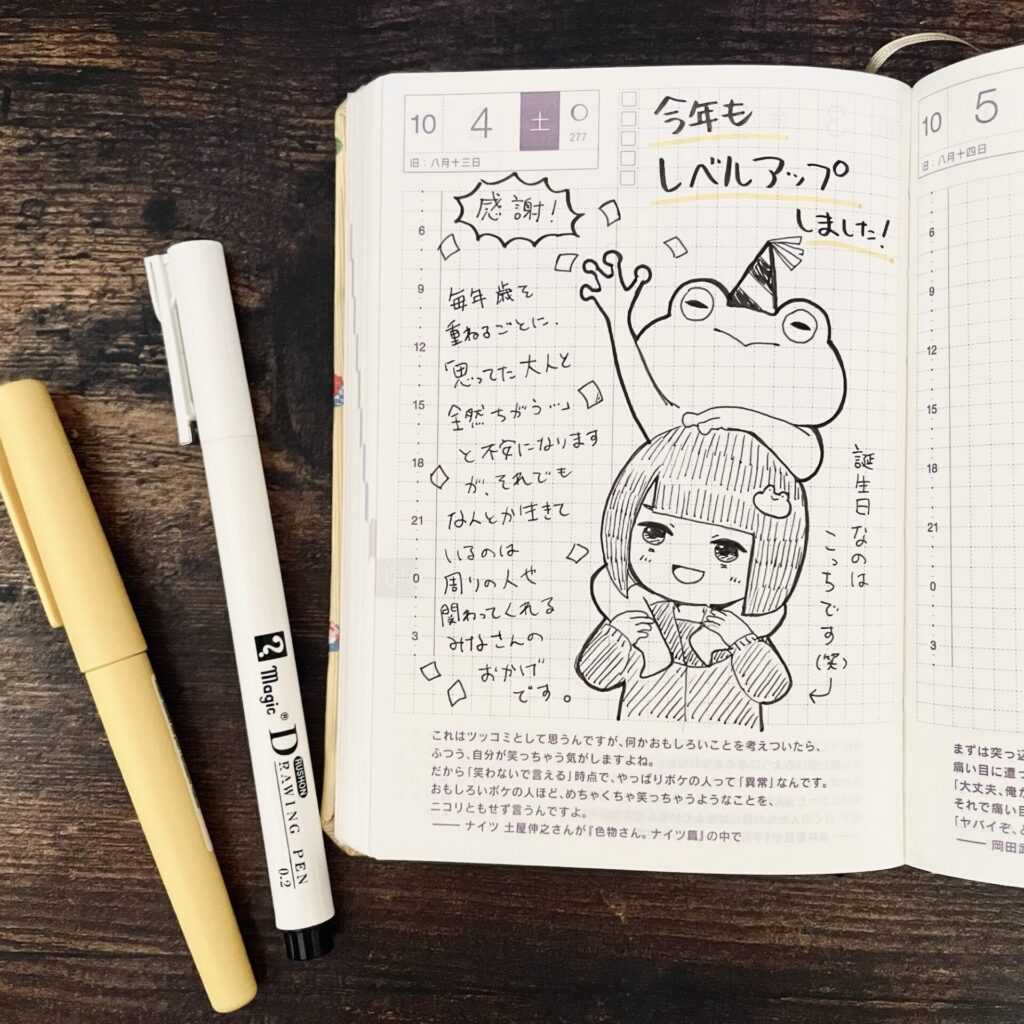 10 4 土
277
旧：八月十三日
今年も
レベルアップ
しました!
感謝!
毎年歳を
重ねるごとに、
「思ってた大人と
全然ちがう…」
と不安になります
が、それでも
なんとか生きて
いるのは
周りの人や
関わってくれる
みなさんの
おかげ
です。
誕生日なのは
こっちです
(笑)
6
9
12
15
18
21
0
3
これはツッコミとして思うんですが、何かおもしろいことを考えついたら、
ふつう、自分が笑っちゃう気がしますよね。
だから「笑わないで言える」時点で、やっぱりボケの人って「異常」なんです。
おもしろいボケの人ほど、めちゃくちゃ笑っちゃうようなことを、
ニコリともせず言うんですよ。
――ナイツ 土屋伸之さんが『色物さん。ナイツ篇』の中で
10 5
旧：八月十四日
6
9
12
15
18
21
0
3
まずは突っ込
痛い目に遭っ
「大丈夫、俺が
それで痛い目
「ヤバイぞ、と
――岡田武
Magic®
RUSHON
DRAWING PEN
0.2